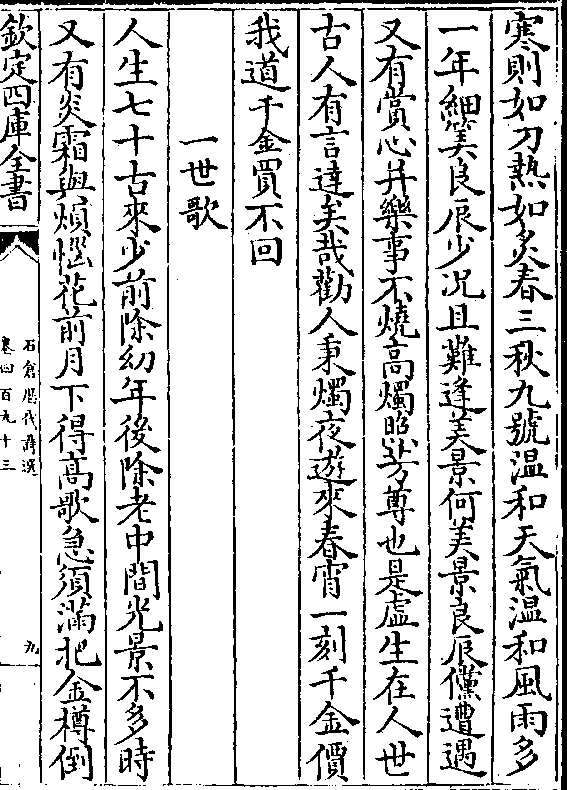 寒則如刀熱如炙春三秋九號温和天氣温和風雨多
一年細筭良辰少况且難逢美景何美景良辰儻遭遇
又有賞心并樂事不燒高燭照芳尊也是虛生在人世
古人有言達矣哉勸人秉燭夜遊來春宵一刻千金價
我道千金買不回
一世歌
人生七十古來少前除幼年後除老中間光景不多時
又有炎霜與煩惱花前月下得高歌急須滿把金樽倒
欽定四庫全書
石倉歷代詩選
卷四百九十三
九